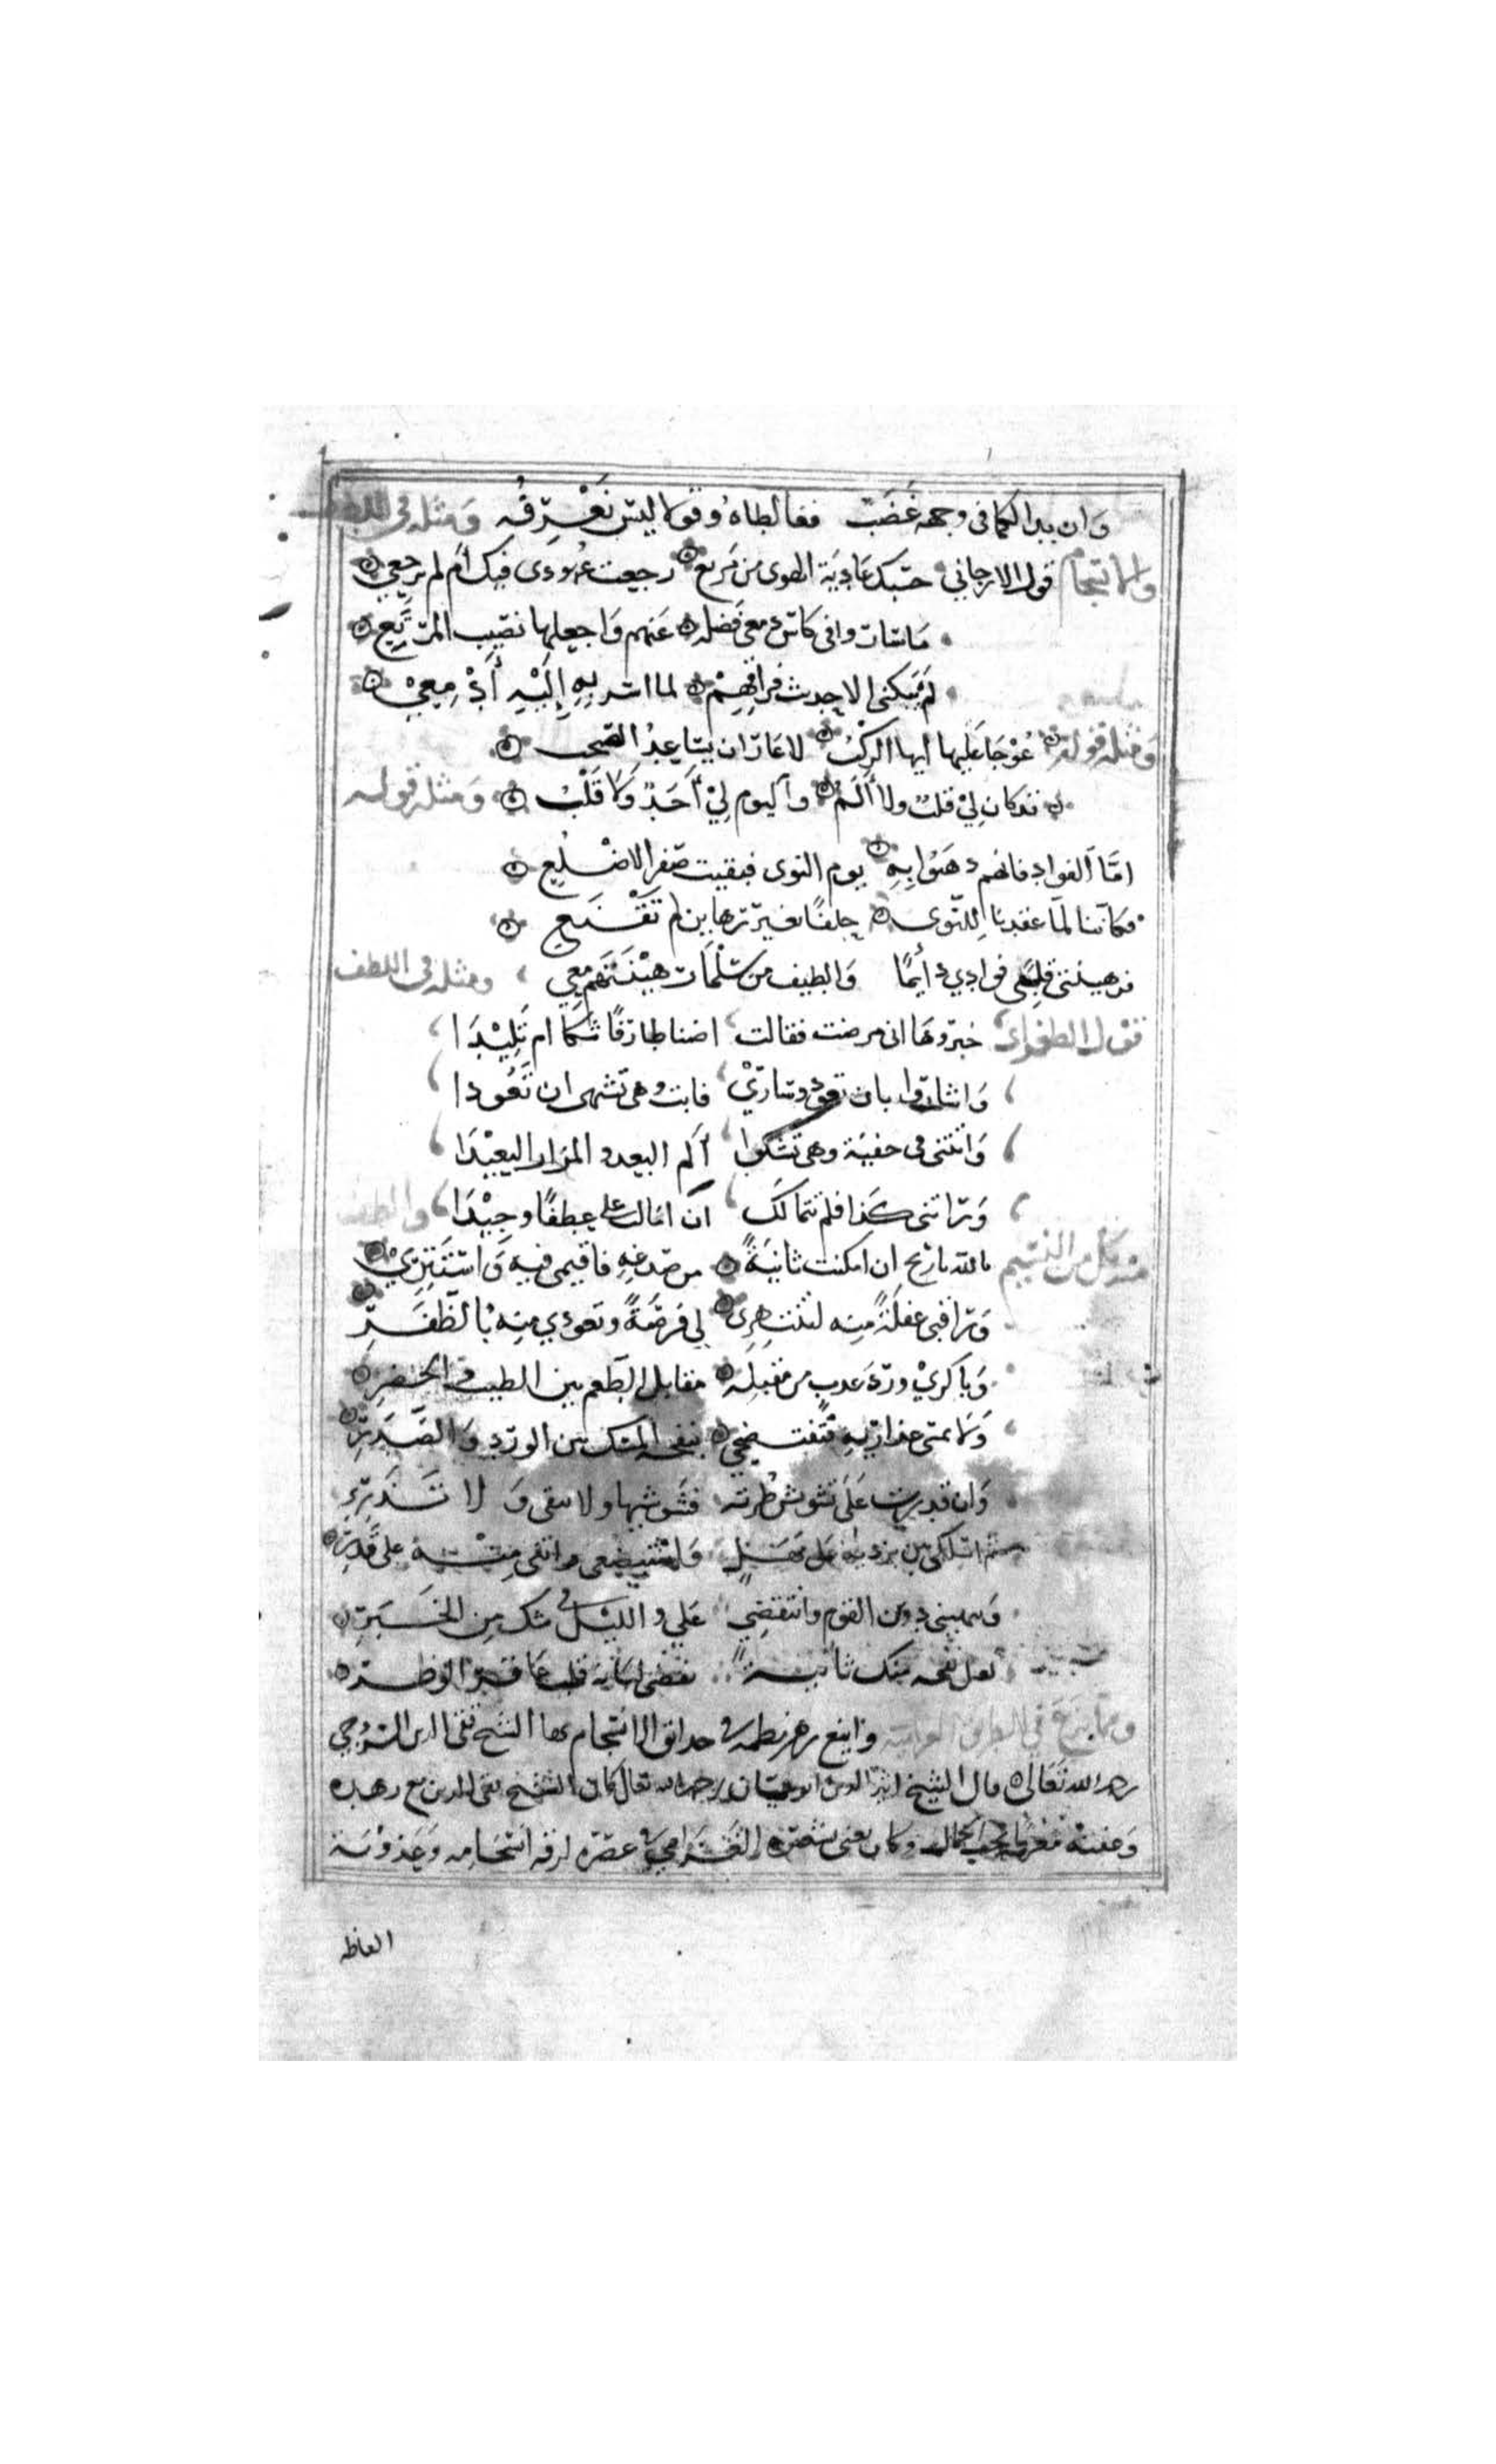 وان بدا لكما في وجهه غضب فغالطاه وقولا ليس نعرفه ومثله في اللطف
والانسجام قول الارجاني حيتك غادية الحيا من مربع رجعت عهودى فيك ام لم ترجعي
عنهم واجعليها نصيب المربع
لم يبكنى الا حديث فراقهم لما اسر به إليه أدمعي
ومثله قوله عوجا عليها ايها الركب لا عار ان يتساعد الصحب
قد كان لي قلب ولا ألم واليوم لي أحد ولا قلب ومثله قوله
اما الفواد فانهم ذهبوا به يوم النوى فبقيت صفر الاضلع
فكاننا لما عقدنا للنوى حلفا بغير
فرهينتى قلبي في ايدي والطيف من سلمات رهينتهم معي ومثله في اللطف
قول الطغراى خبروها انى مرضت فقالت اضنا طارفا شكا ام تليدا
واشاروا بان تعود وسادي فابت وهى تشهى ان تعودا
واتتنى فى خفية وهى تشكوا ألم البعد والمزار البعيدا
وراتنى كذا فلم تتمالك ان امالت على عطفا وجيدا والطف
منه قوله من النسيم بالله يا ريح ان امكنت ثانية من صدغه فاقيمى فيه واستتري
وراقبى غفلة منه لتنتهزى لي فرصة وتعودي منه بالظفر
وباكري ورد عذب من مقبله مقابل الطعم بين الطيب والخصر
ولا تمسى عذاريه فتفتضحي بنفحة المسك بين الورد والصدر
وان قدرت على تشويش طرته فشوشيها ولا تبقى ولا تذري
ثم اسلكى بين برديه على مهل واستبضعى وانثنى منه على قدر
ونبهينى دوين القوم وانتفضي علي والليل في شك من السحر
لعل نفحة منك ثانية تقضى لبانة قلب عاقر الوطر
وقما واينع زهر نظمه في حدائق الانسجام بها الشيخ تقى الدين السروجي
رحمه الله تعالى قال الشيخ اثير الدين ابو حيان رحمه الله تعالى كان الشيخ تقى الدين مع زهده
وعفته مغرما بحب الجمال وكان يغنى بشعره الغرامي في عصره لرقة انسجامه وعذوبة
الفاظه